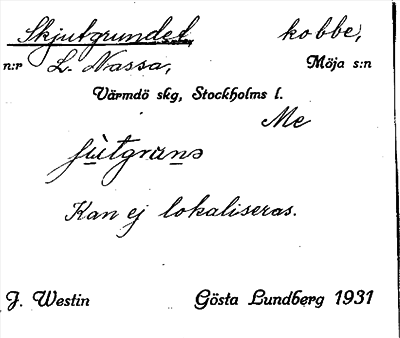 Skjutgrundet, kobbe,
n:r L. Nassa, Möja s:n
Värmdö skg, Stockholms l.
Me
ʃùtgrunə
Kan ej lokaliseras.
J. Westin Gösta Lundberg 1931